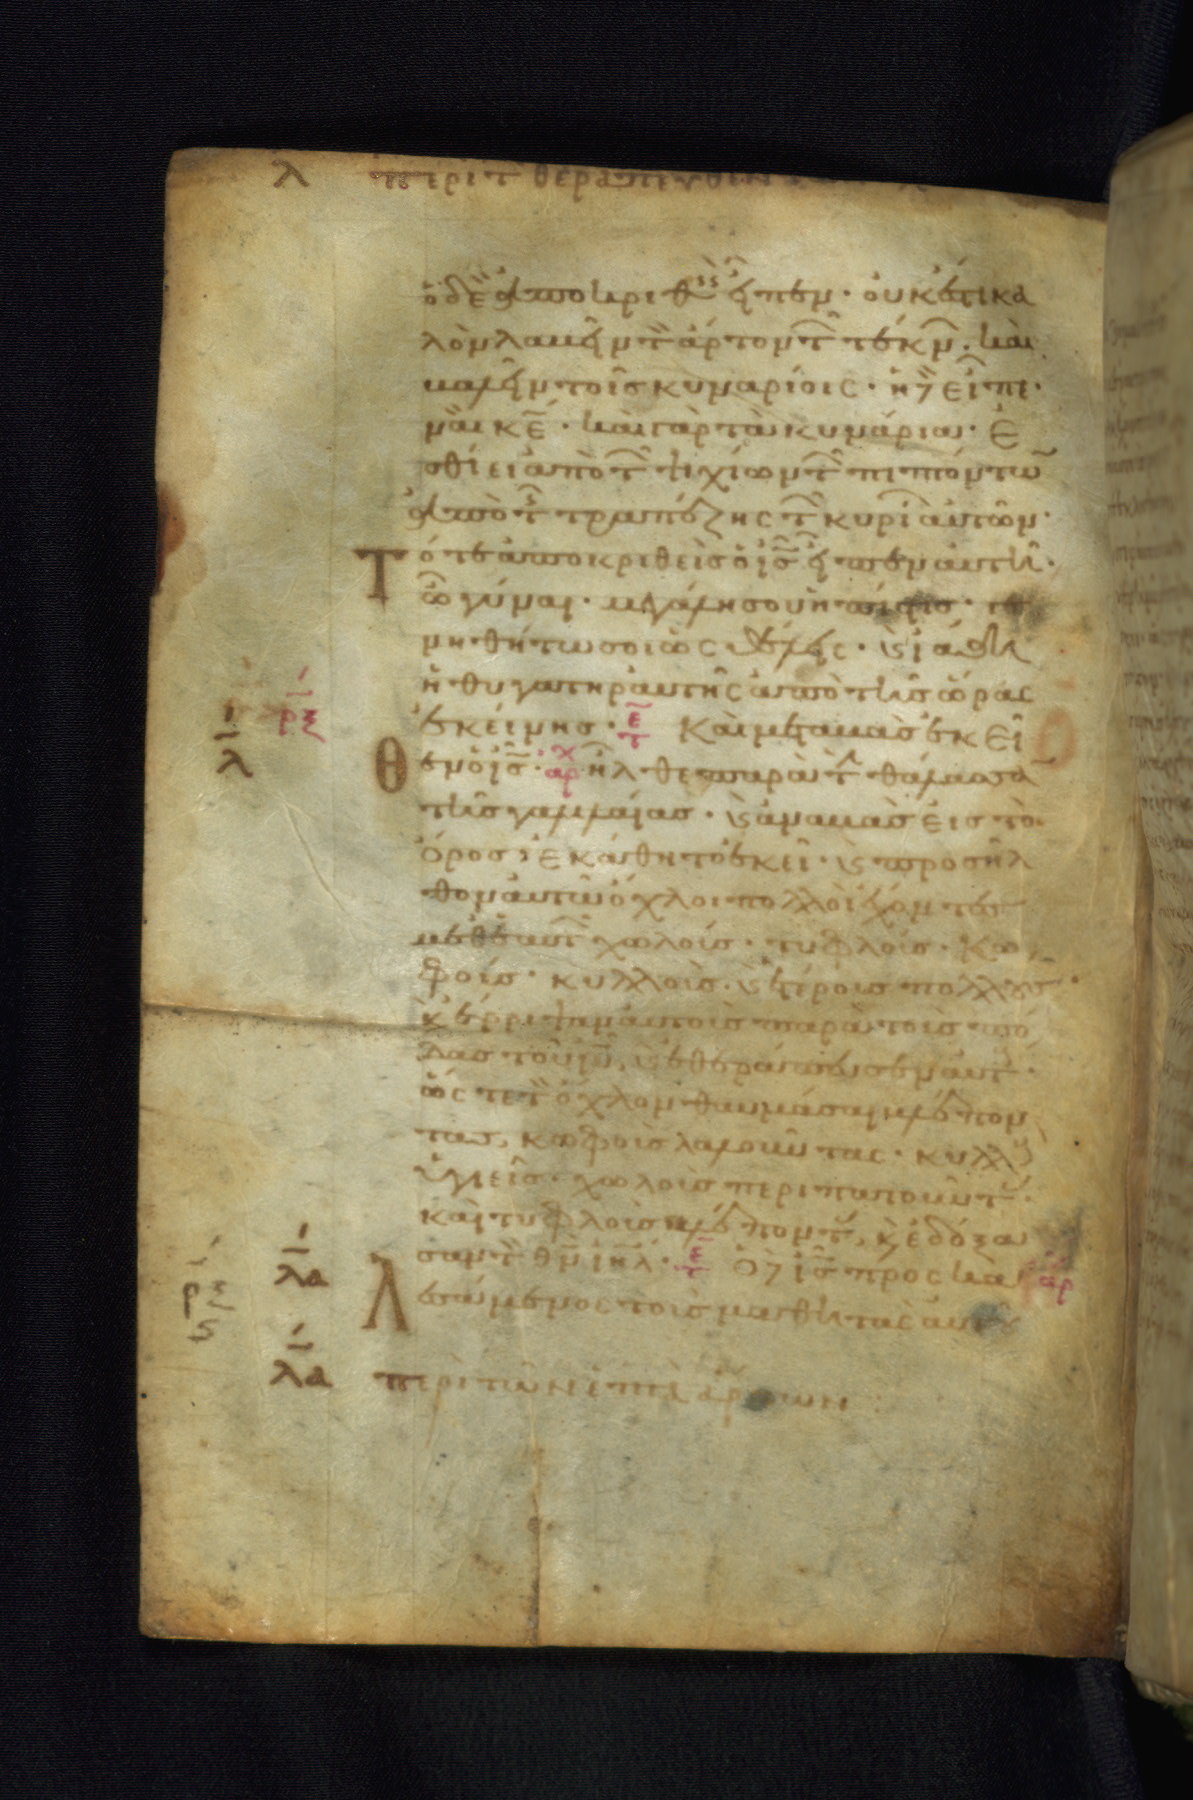 λ περι τ θεραπευθεν
ὁ δὲ ἀποκριθεὶς εἶπεν· οὐκ ἔστι κα
λὸν λαβεῖν τὸν ἄρτον τῶν τέκνων. καὶ
βαλεῖν τοῖς κυναρίοις· ἡ δὲ εἶπε·
ναὶ κε̅· καὶ γὰρ τὰ κυνάρια· ἐ
σθίει ἀπὸ τῶν ψιχίων τῶν πιπτόντων
ἀπὸ τῆς τραπέζης τῶν κυρίων αὐτῶν·
Τότε ἀποκριθεὶς ὁ ι̅ς̅ εἶπεν αὐτῆ·
ὦ γύναι· μεγάλη σου ἡ πίστις·
νηθήτω σοι ὡς θέλεις· κ ἰάθη
ἡ θυγάτηρ αὐτῆς ἀπὸ τῆς ὥρας
ἐκείνης· τε Καὶ μεταβὰς ἐκεῖ
θεν ὁ ι̅ς̅· αρχ ἦλθε παρὰ τ θάλασσαν
τῆς γαλιλαίας· κ ἀναβὰς εἰς τὸ
ὄρος· ἐκάθητο ἐκεῖ· κ προσῆλ
θον αὐτῶ ὄχλοι πολλοὶ ἔχοντες
μεθ ἑαυτ χωλούς· τυφλούς· κω
φούς· κυλλούς· κ ἑτέρους πολλούς·
κ ἔρριψαν αὐτοὺς παρὰ τοὺς πό
δας τοῦ ι̅υ̅, κ ἐθεράπευσεν αὐτ·
ὥς τε τ ὄχλον θαυμάσαι βλέπον
τας, κωφοὺς λαλοῦντας· κυλλ
ὑγιεῖς· χωλοὺς περιπατοῦντ·
καὶ τυφλοὺς βλέποντ, κ ἐδόξα
σαν τ θ̅ν̅ ι̅η̅λ̅· τε Ὁ δὲ ι̅ς̅ προσκα αρ
λεσάμενος τοὺς μαθητὰς αὐτ
λ
ρξ
λα
ρξς
λα περὶ τῶν ἑπτὰ ἄρτων